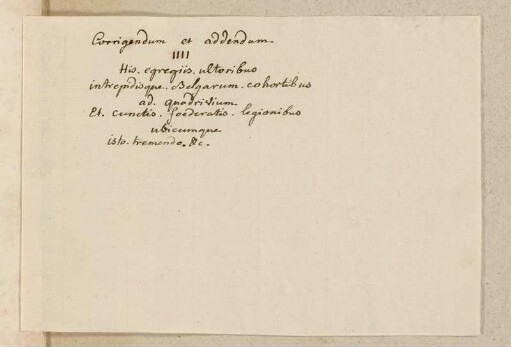 Corrigendum et addendum
IIII
His. egregiis. ultoribus
intrepidisque. Belgarum. cohortibus
ad. quadrivium.
Et. cunctis. foederatis. legionibus
ubicumque
isto. tremendo. &c.